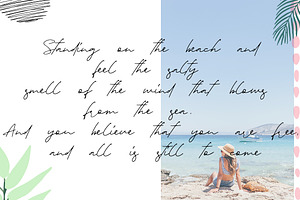 Standing on the beach and
feel the salty
smell of the wind that blows
from the sea.
And you believe that you are free
and all is still to come